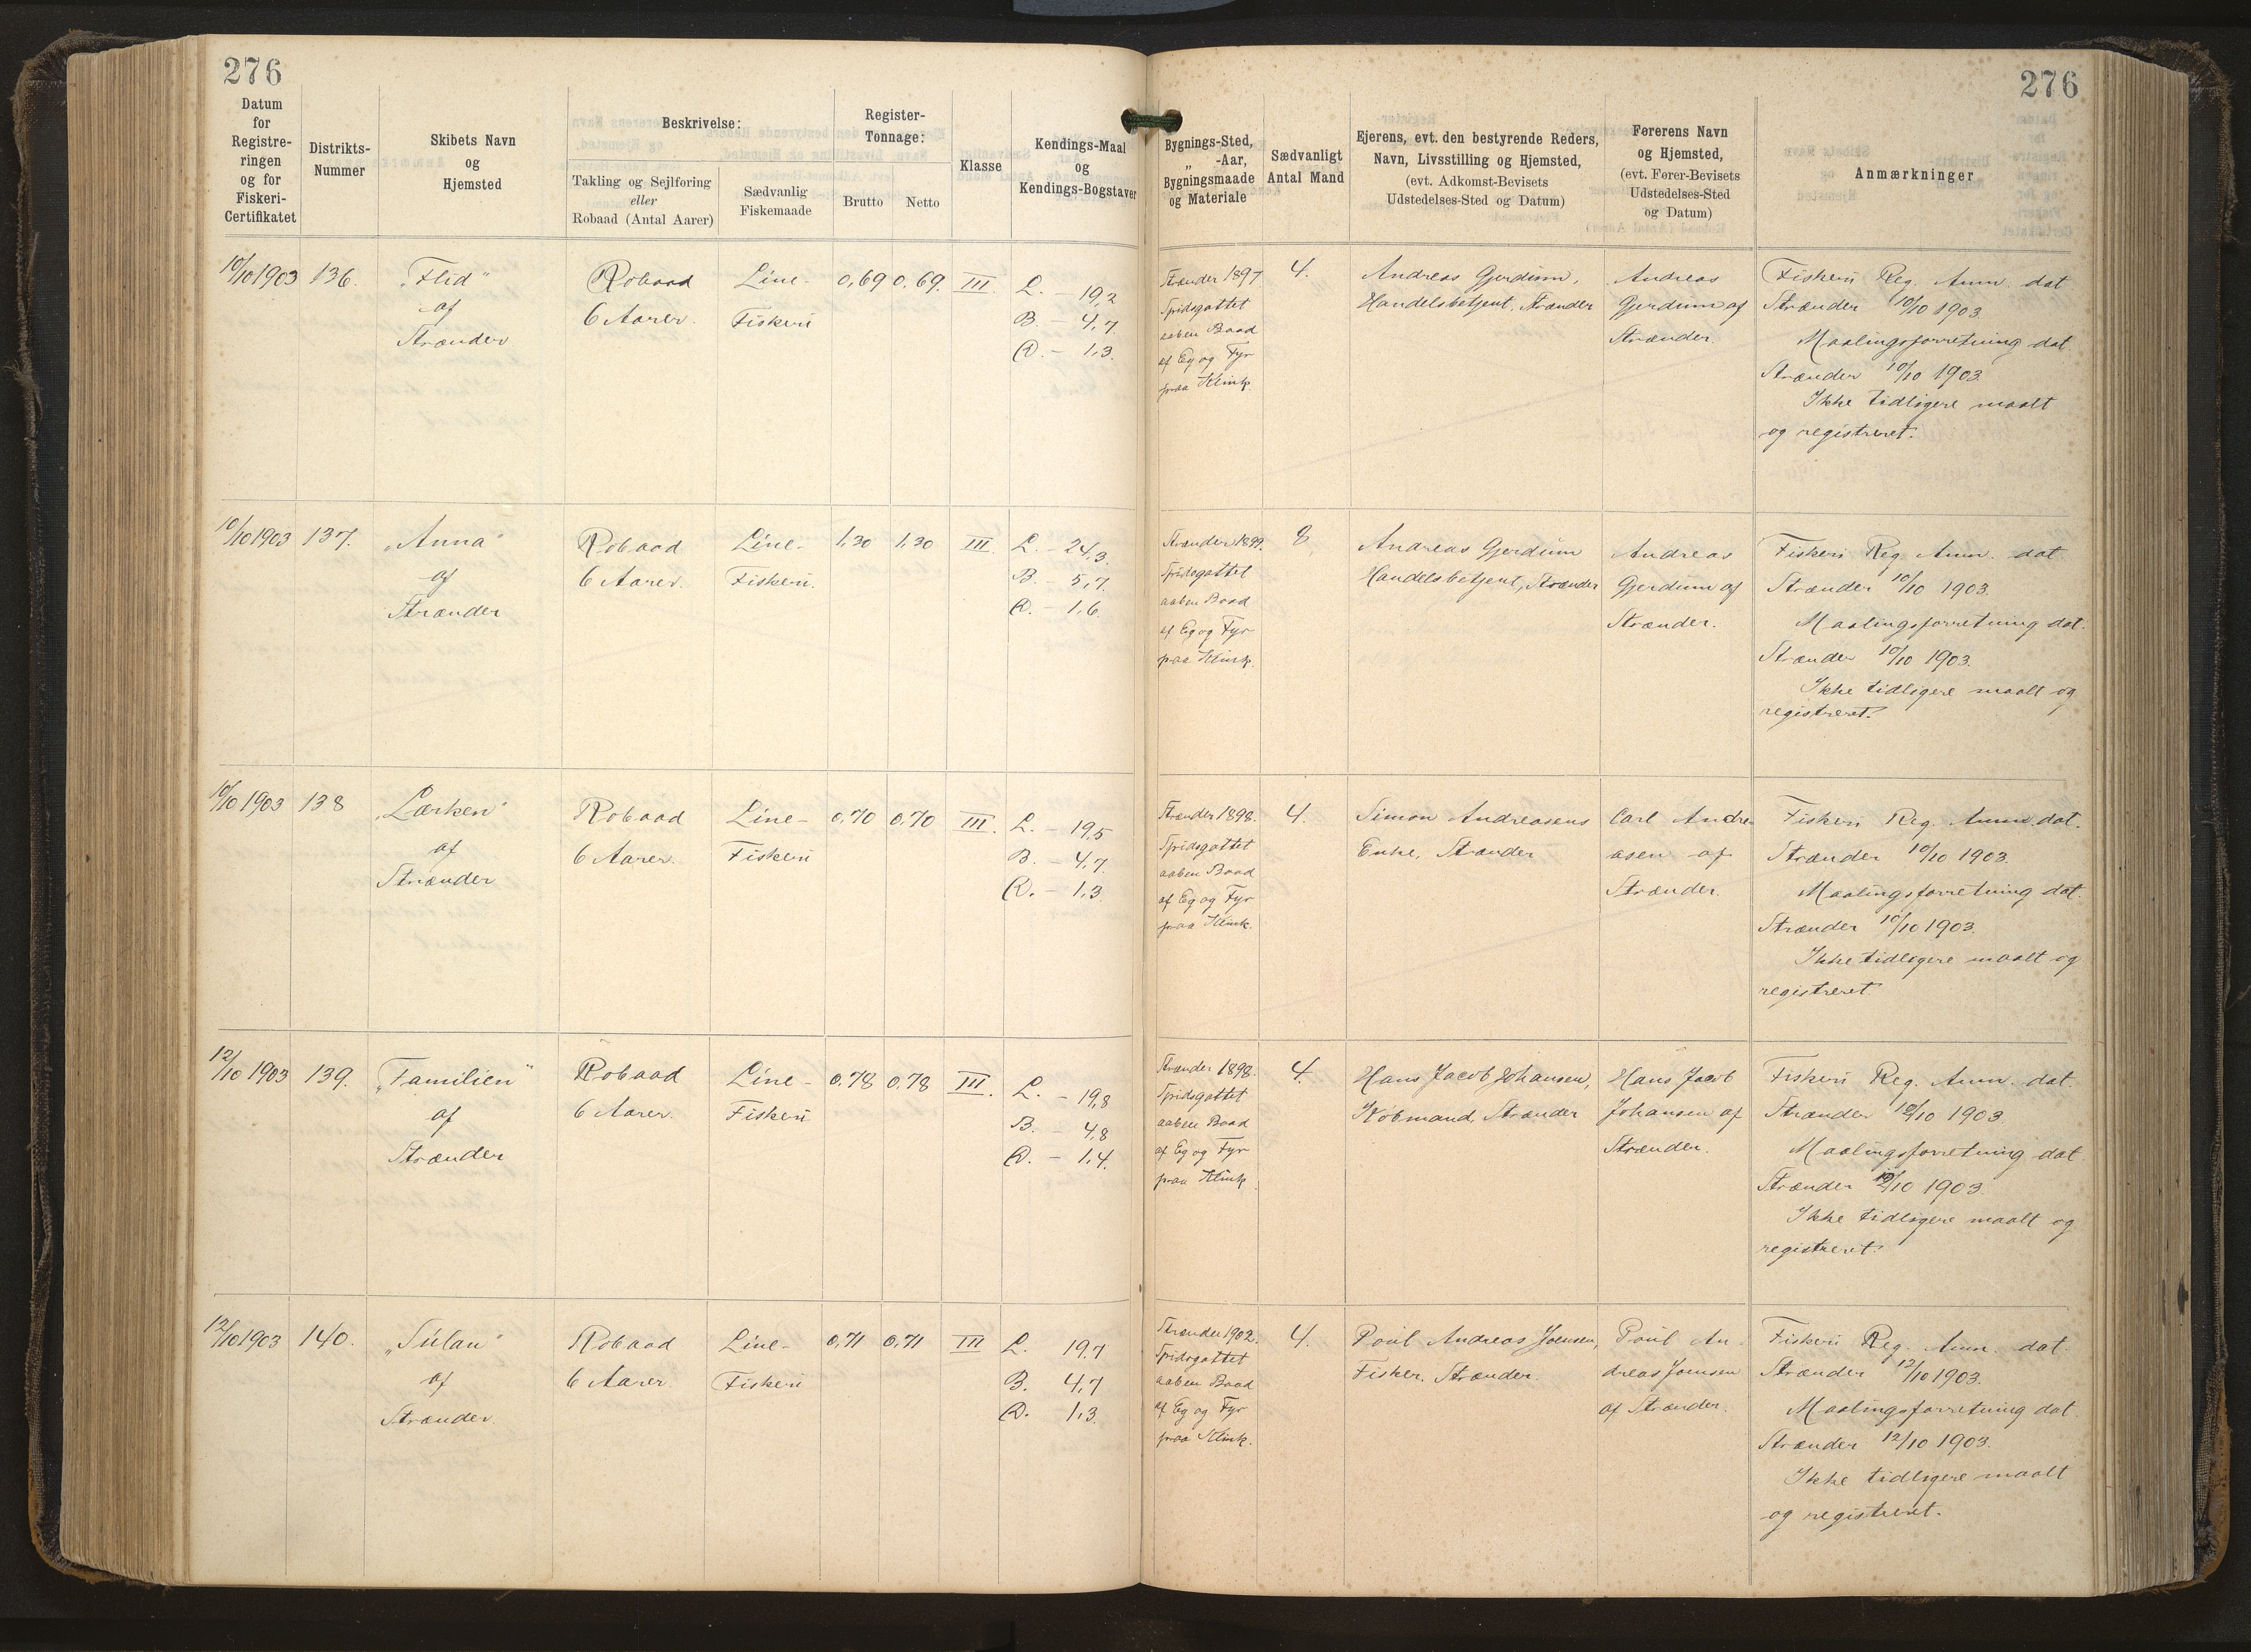 276
276
Datum
for
Registre-
ringen
og for
Fiskeri-
Certifikatet
Distrikts-
Nummer
Skibets Navn
og
Hjemsted
Beskrivelse:
Takling og Sejlføring
eller
Robaad (Antal Aarer)
Sædvanlig
Fiskemaade
Register-
Tonnage:
Brutto
Netto
Klasse
Kendings-Maal
og
Kendings-Bogstaver
Bygnings-Sted,
„ -Aar,
Bygningsmaade
og Materiale
Sædvanligt
Antal Mand
Ejerens, evt. den bestyrende Reders,
Navn, Livsstilling og Hjemsted,
(evt. Adkomst-Bevisets
Udstedelses-Sted og Datum)
Førerens Navn
og Hjemsted,
(evt. Fører-Bevisets
Udstedelses-Sted
og Datum)
Anmærkninger
10/10 1903
136.
„Flid“
af
Strænder
Robaad
6 Aarer.
Line-
Fiskeri
0,69
0,69.
III.
L. – 19,2
B. – 4,7
D. – 1,3.
Strænder 1897
Spidsgattet
aaben Baad
af Eg og Fyr
paa Klink.
4.
Andreas Gjerdum,
Handelsbetjent, Strænder
Andreas
Gjerdum af
Strænder.
Fiskeri Reg. Anm. dat.
Strænder 10/10 1903.
Maalingsforretning dat.
Strænder 10/10 1903.
Ikke tidligere maalt
og registreret.
10/10 1903
137.
„Anna“
af
Strænder
Robaad
6 Aarer.
Line-
Fiskeri.
1,30
1,30
III.
L. – 24,3.
B. – 5,7.
D. – 1,6.
Strænder 1899.
Spidsgattet
aaben Baad
af Eg og Fyr
paa Klink.
8
Andreas Gjerdum
Handelsbetjent, Strænder
Andreas
Gjerdum af
Strænder.
Fiskeri Reg. Anm. dat
Strænder 10/10 1903.
Maalingsforretning dat.
Strænder 10/10 1903.
Ikke tidligere maalt og
registreret.
10/10 1903
138
„Lærken“
af
Strænder
Robaad
6 Aarer.
Line-
Fiskeri
0,70
0,70
III.
L. – 19,5
B. – 4,7.
D. – 1,3.
Strænder 1898.
Spidsgattet
aaben Baad
af Eg og Fyr
paa Klink.
4.
Simon Andreasens
Enke, Strænder
Carl Andre-
asen af
Strænder.
Fiskeri Reg. Anm. dat.
Strænder 10/10 1903.
Maalingsforretning dat.
Strænder 10/10 1903.
Ikke tidligere maalt og
registreret.
12/10 1903
139.
„Familien“
af
Strænder
Robaad
6 Aarer.
Line-
Fiskeri
0,78
0,78
III.
L. – 19,8
B. – 4,8
D. – 1,4.
Strænder 1898.
Spidsgattet
aaben Baad
af Eg og Fyr
paa Klink.
4.
Hans Jacob Johansen,
Købmand, Strænder
Hans Jacob
Johansen af
Strænder.
Fiskeri Reg. Anm. dat.
Strænder 12/10 1903.
Maalingsforretning dat
Strænder 12/10 1903.
Ikke tidligere maalt og
registreret.
12/10 1903
140.
„Sulan“
af
Strænder.
Robaad
6 Aarer
Line-
Fiskeri
0,71
0,71
III
L. 19,7
B. 4,7
D. 1,3.
Strænder 1902.
Spidsgattet
aaben Baad
af Eg og Fyr
paa Klink.
4.
Poul Andreas Joensen,
Fisker, Strænder.
Poul An-
dreas Joensen
af Strænder.
Fiskeri Reg. Anm. dat.
Strænder 12/10 1903.
Maalingsforretning dat.
Strænder 12/10 1903.
Ikke tidligere maalt
og registreret.